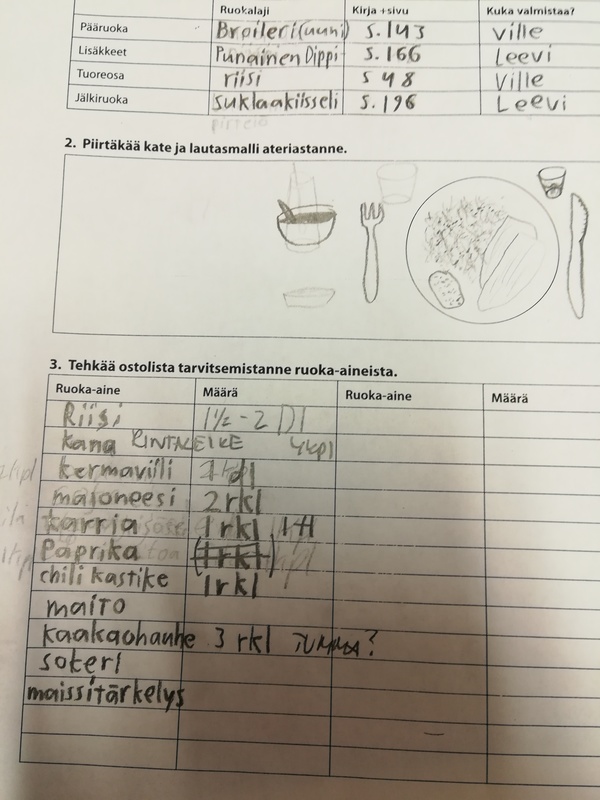 Ruokalaji Kirja +sivu Kuka valmistaa?
Pääruoka Broileri(uuni) s.143 Ville
Lisäkkeet Punainen Dippi s.166 Leevi
Tuoreosa riisi s 48 Ville
Jälkiruoka suklaakiisseli s.196 Leevi
pirtelö
2. Piirtäkää kate ja lautasmalli ateriastanne.
3. Tehkää ostolista tarvitsemistanne ruoka-aineista.
Ruoka-aine Määrä Ruoka-aine Määrä
Riisi 1½-2 Dl
kana RINTALEIKE 4kpl
kermavilli dl
majoneesi 2rkl
karria 1rkl
Paprika 1rkl kpl
chili kastike 1rkl
maito
kaakaohauhe 3 rkl TUMMA?
sokeri
maissitärkelys